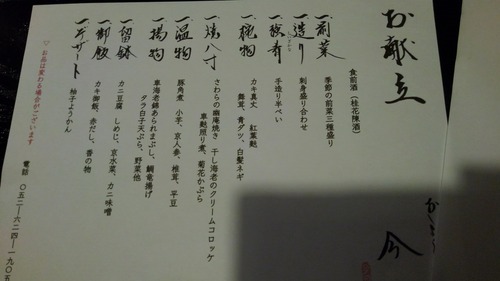 お献立
食前酒（桂花陳酒）
一、前菜
季節の前菜三種盛り
一、造り
刺身盛り合わせ
手造り半ぺい
一、椀物
カキ真丈　紅葉麩
舞茸、青ダツ、白髪ネギ
一、焼八寸
さわらの幽庵焼き　干し海老のクリームコロッケ
車麩照り煮、菊花かぶら
一、温物
豚角煮、小芋、京人参、椎茸、平豆
一、揚物
車海老鍋あられまぶし、鯛竜揚げ
タラ白子天ぷら、野菜他
一、留鉢
カニ豆腐、しめじ、京水菜、カニ味噌
一、御飯
カキ御飯、赤だし、香の物
一、デザート
柚子ようかん
♡ お品は変わる場合がございます
電話　〇五二―六二四―一九〇五